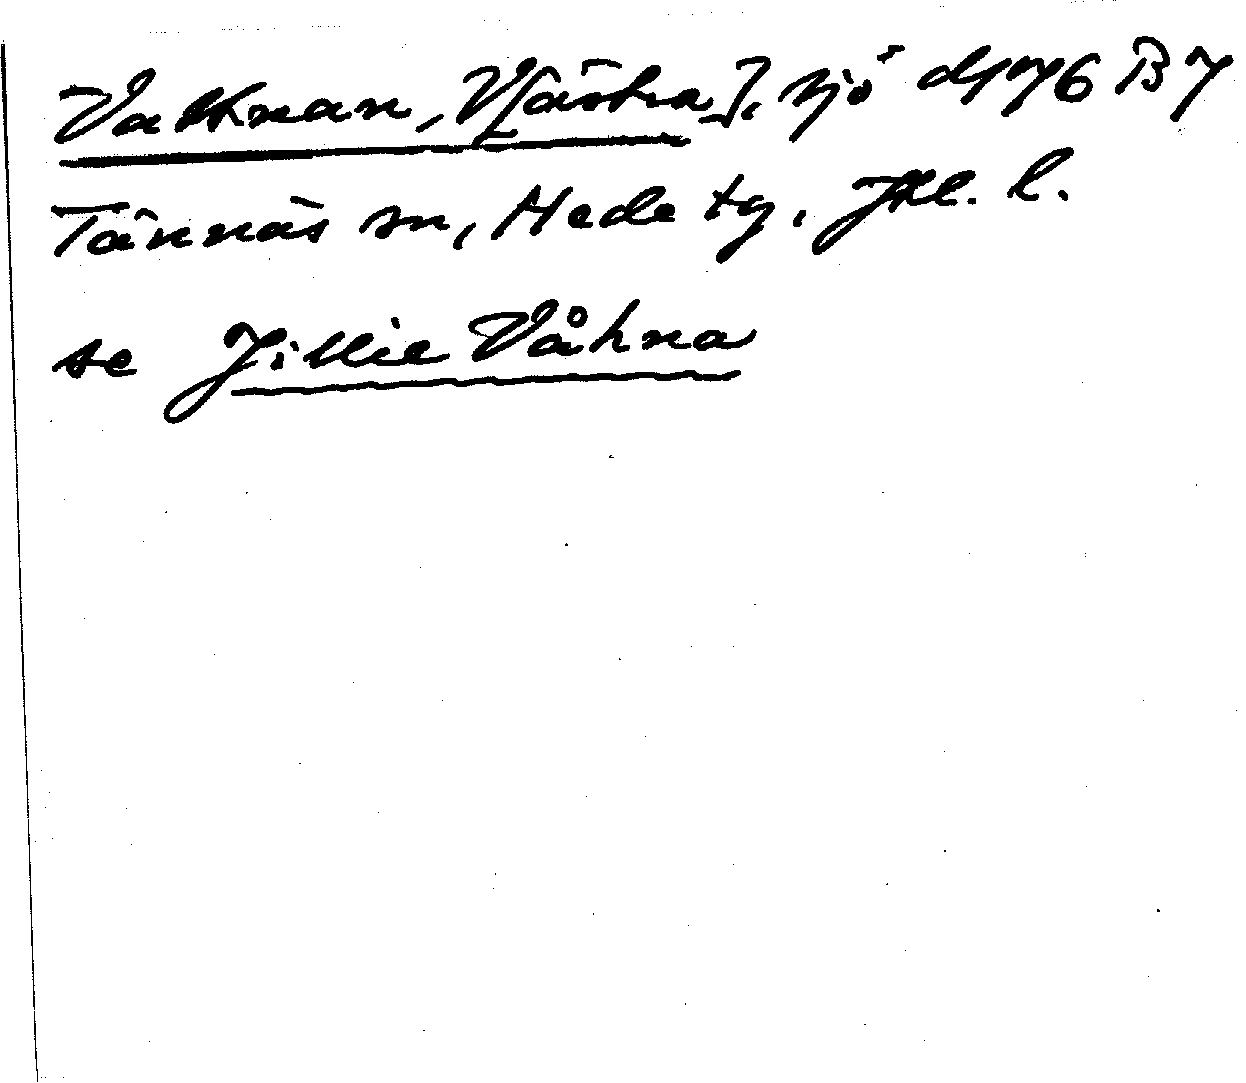 Valtnan, V[ästra], sjö df 76 B 7
Tännäs sn, Hede tg, Jtl. l.
se Jillie Våhna